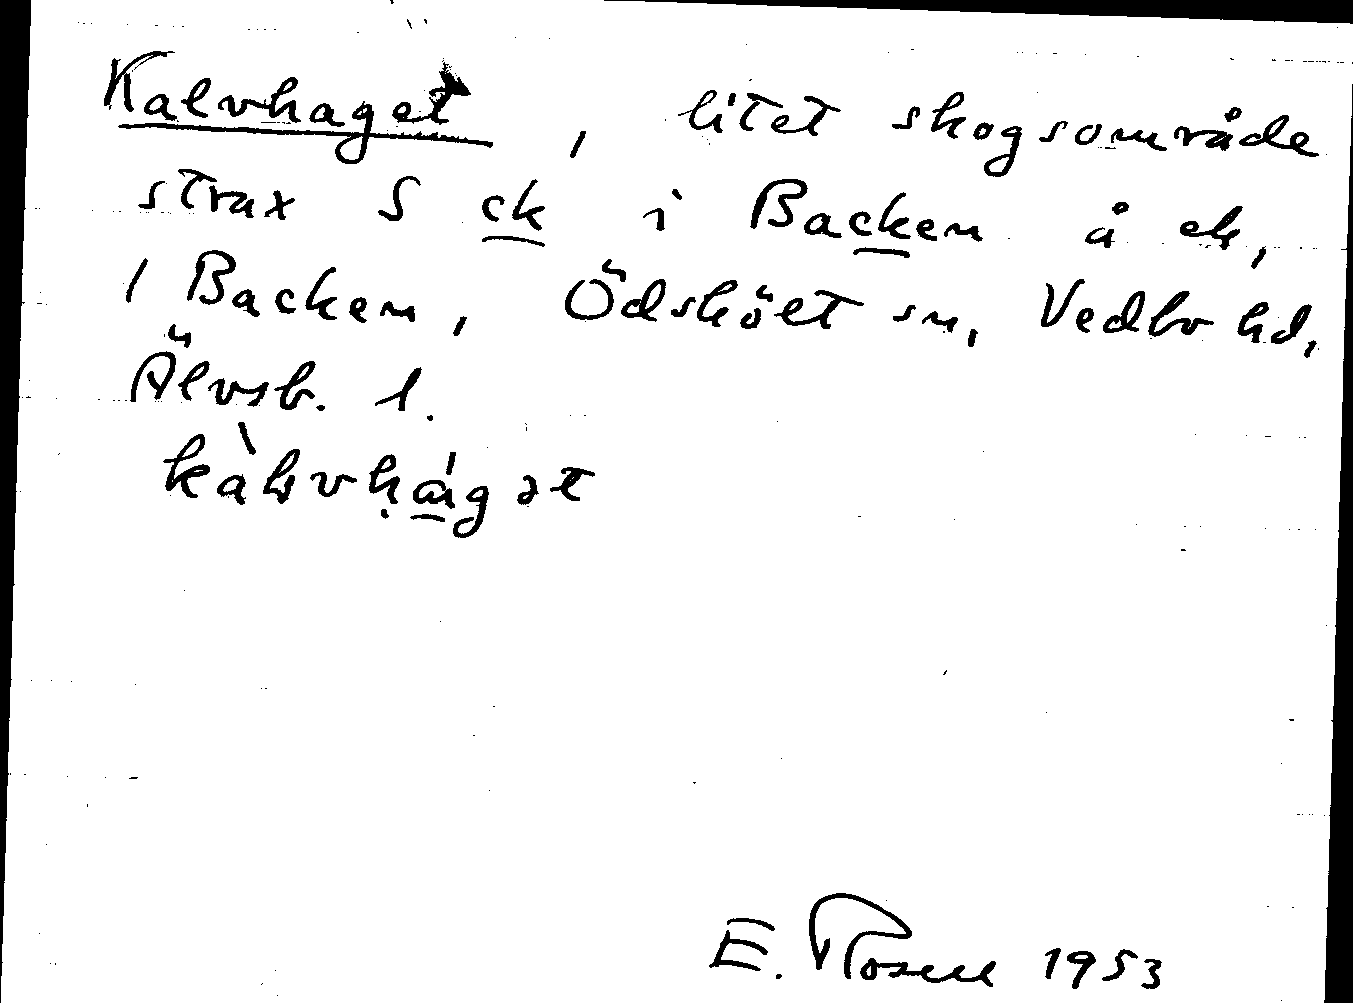 Kalvhaget, litet skogsområde
strax S ck i Backen å ek,
1 Backen, Ödsköلt sn, Vedbo hd,
Älvsb. l.
E. Rosell 1953